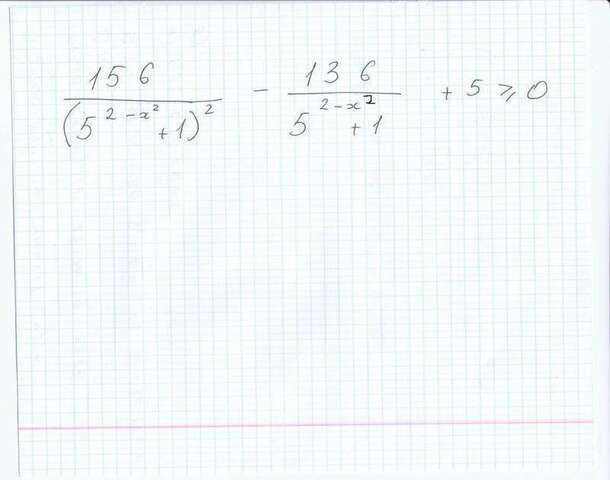 156/(5^(2-x²)+1)² - 136/(5^(2-x²)+1) + 5 ⩾ 0